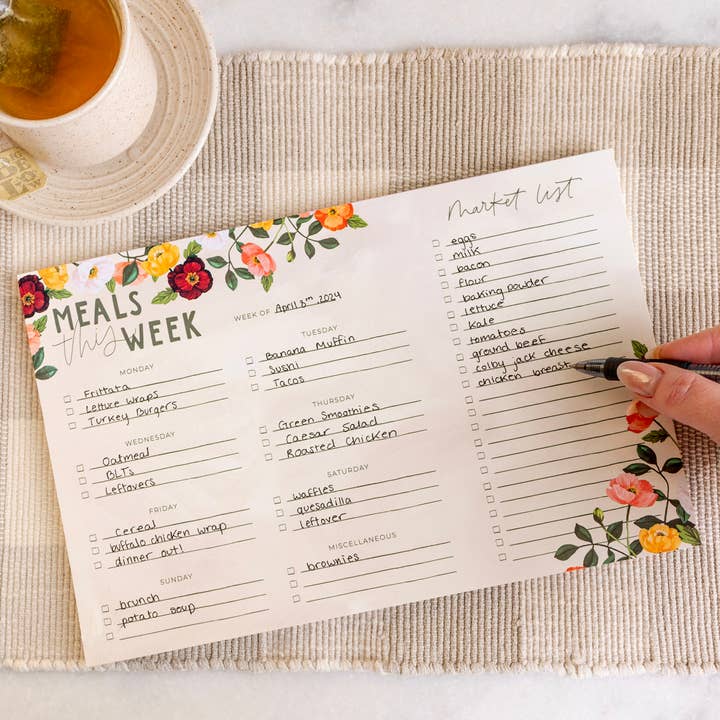 MEALS
this WEEK
WEEK OF April 8th, 2024
MONDAY
Frittata
Lettuce Wraps
Turkey Burgers
TUESDAY
Banana Muffin
Sushi
Tacos
WEDNESDAY
Oatmeal
BLTs
Leftovers
THURSDAY
Green Smoothies
Caesar Salad
Roasted Chicken
FRIDAY
cereal
buffalo chicken wrap
dinner out!
SATURDAY
waffles
quesadilla
leftover
SUNDAY
brunch
potato soup
MISCELLANEOUS
brownies
market list
eggs
milk
bacon
flour
baking powder
lettuce
kale
tomatoes
ground beef
colby jack cheese
chicken breast